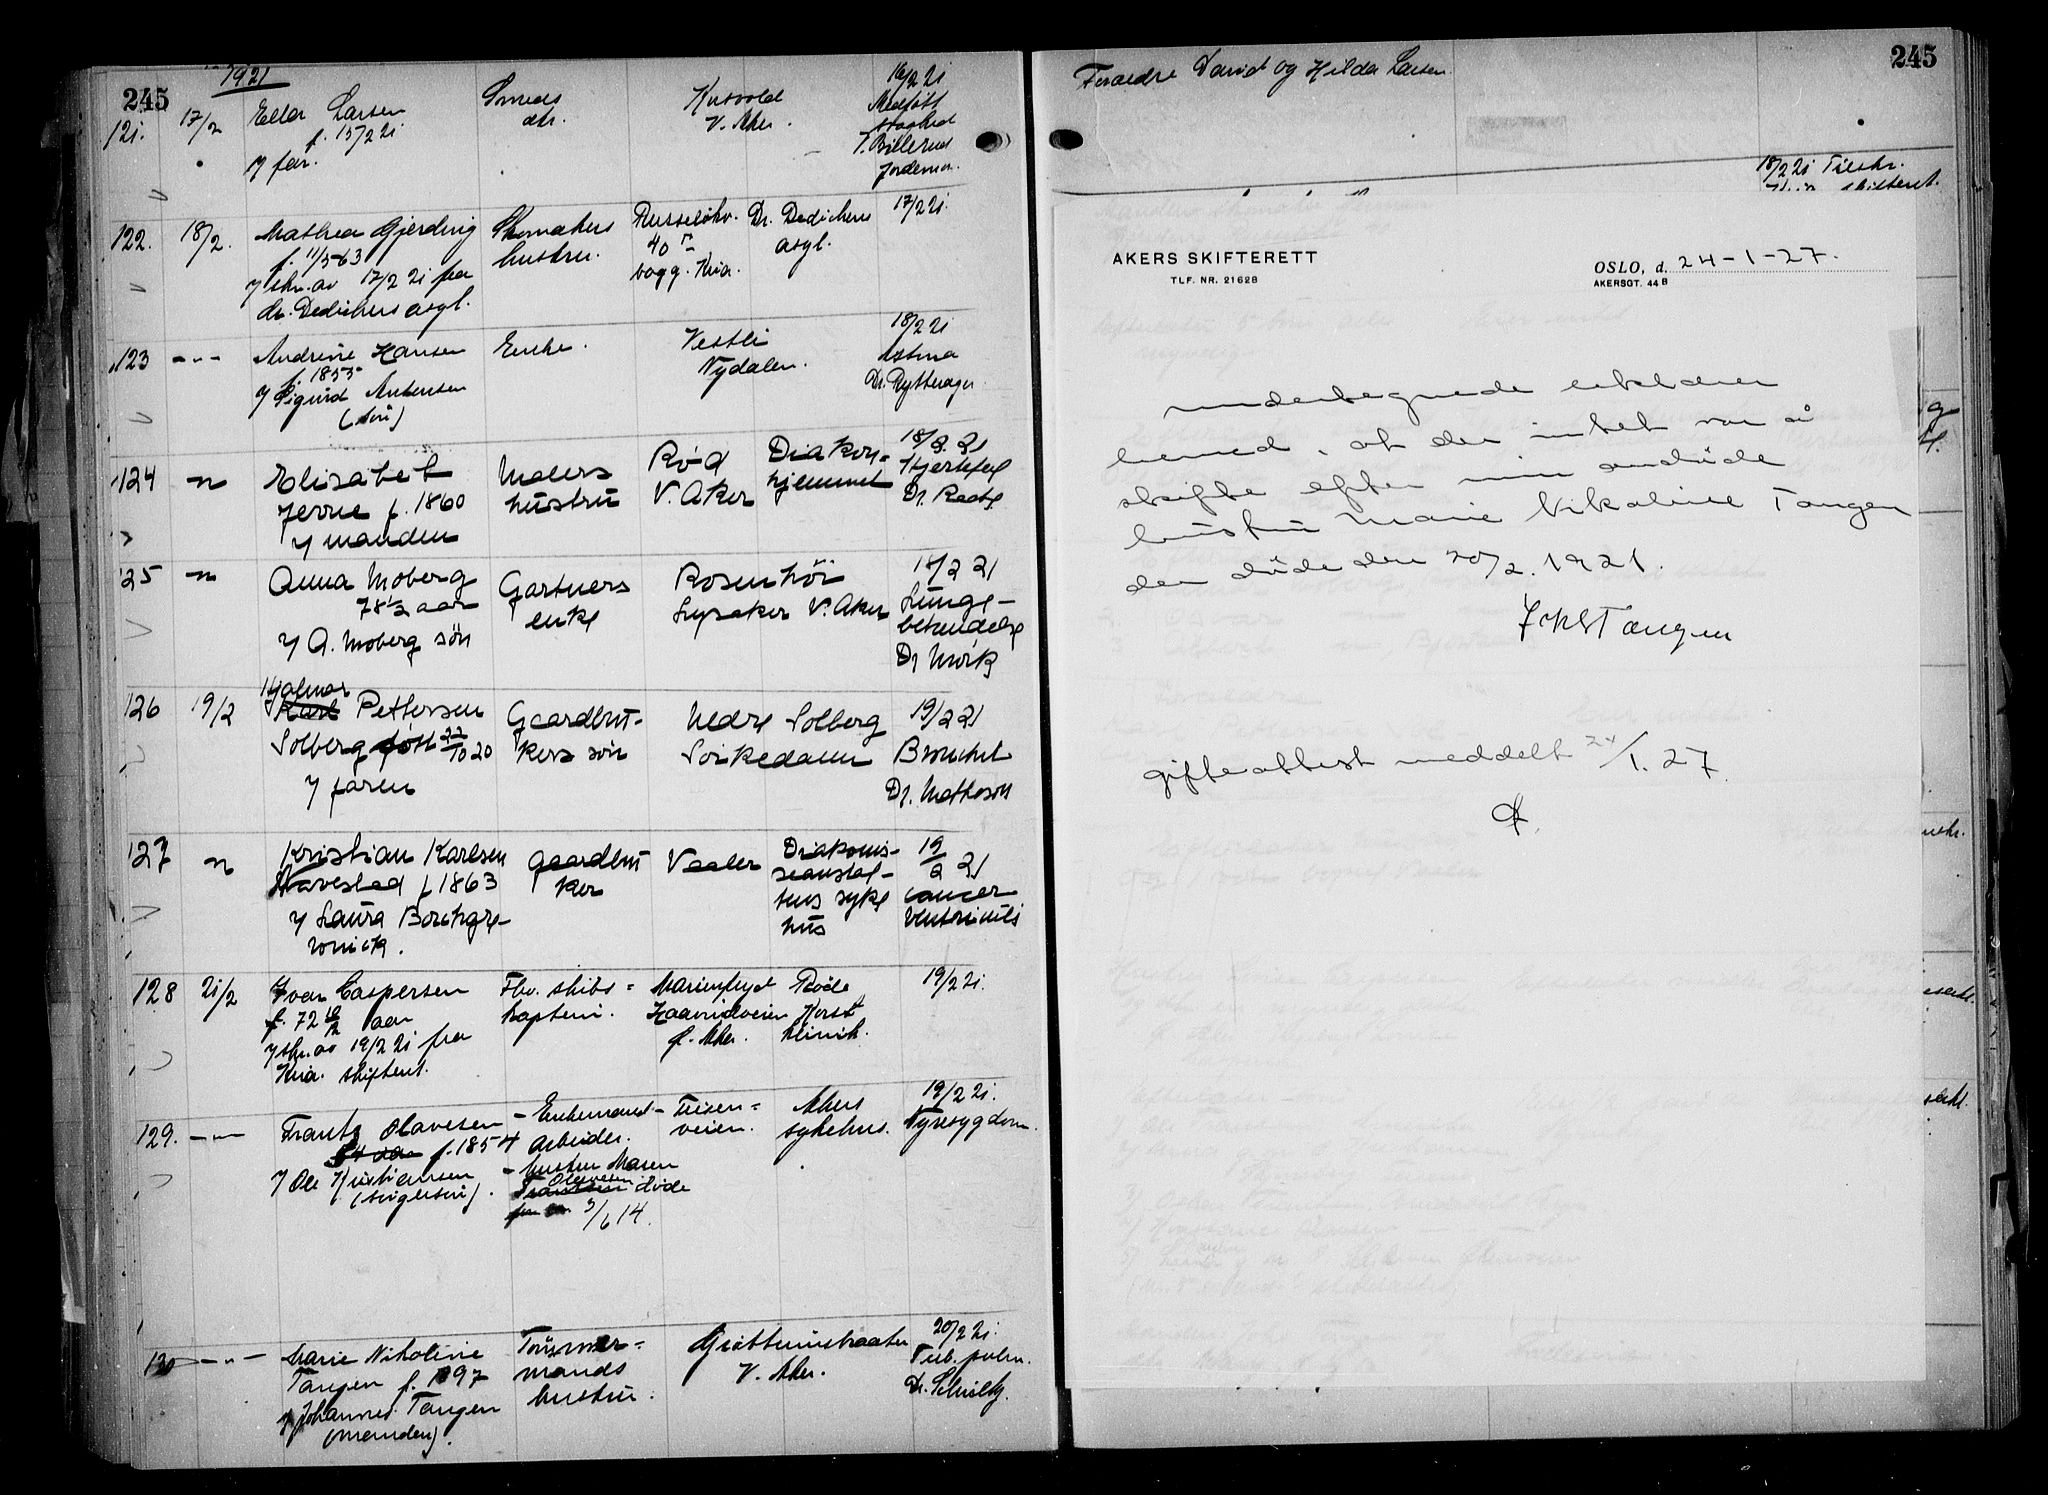 245
1921
121. 17/2 Ella Larsen
f. 15/2 21
v/ far.
Smeds
dtr.
V. Aker.
16/2 21
Medfött
svaghed
J. Billerud
Jordemor.
122. 18/2. Mathea Gjerding
f. 11/5-63
v/ skr. av 17/2 21 fra
dr. Dedichens asyl.
Skomakers
hustru.
Russeløkv.
40 IV
bogg. Kria.
Dr. Dedichens
asyl.
17/2 21.
123 -"- Andrine Hansen
f. 1853
v/ Sigurd Antonsen
(sön)
Enke.
Vestli
Nydalen.
18/2 21
Astma
Dr. Rytterager.
124 -"- Elisabet
Jevne f. 1860
v/ manden
Malers
hustru
Röd
V. Aker
Diakon-
hjemmet
18/2. 21
Hjertefeil
125 -"- Anna Moberg
78 1/2 aar
v/ A. Moberg sön
Gartners
enke
Rosenhöi
Lysaker V. Aker
18/2 21
Lunge-
betendelse
Dr Mörk
126 19/2 Hjalmar
Karl Pettersen
Solberg født 22/10 20
v/ faren
Gaardbru-
kers sön
Nedre Solberg
Sörkedalen
19/2 21
Bronchit
Dr. Matheson
127 -"- Kristian Karlsen
Navestad f 1863
v/ Laura Borchgre-
vinck.
Gaardbru-
ker
Vaaler
Diakonis-
seanstal-
tens syke
hus
19/2 21
cancer
ventriculi
128 21/2 Ivar Caspersen
f. 72 10/12 aar
v/ skr. av 19/2 21 fra
Kria. skifteret.
Fhv. skibs=
kaptein.
Marienlyst
Haavindveien
Ø. Aker.
Röde
Kors
klinik.
19/2 21.
129. -"- Frants Olavesen
f. 1854
v/ Ole Kristiansen
(svigersön).
- Enkemand -
Arbeider.
- hustru Maren
Olavesen
Frantsen döde
3/6 14.
Teisen=
veien.
Akers
sykehus.
19/2 21.
Nyresygdom.
130 -"- Marie Nikoline
Tangen f. 1897
v/ Johannes Tangen
(manden).
Tömmer=
mands
hustru.
V. Aker.
20/2 21.
Tub. pulm.
245
Foraeldre David og Hilda Larsen
18/2 21 Tilskr.
skifteret.
AKERS SKIFTERETT
TLF. NR. 21628
OSLO, d. 24-1-27.
AKERSGT. 44 B
undertegnede erklærer
herved, at der intet var å
skifte efter min avdöde
hustru Marie Nikoline Tangen
der döde den 20/2. 1921.
Tangen
gifteattest meddelt 24/1. 27.